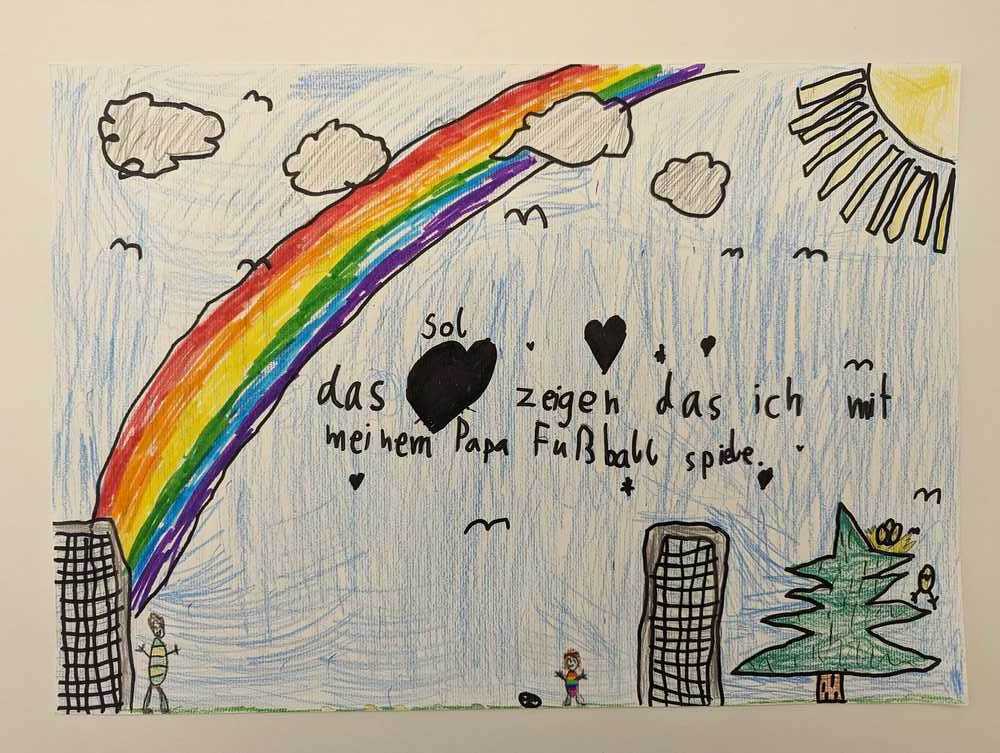 sol
das zeigen das ich mit
meinem Papa Fußball spiele.